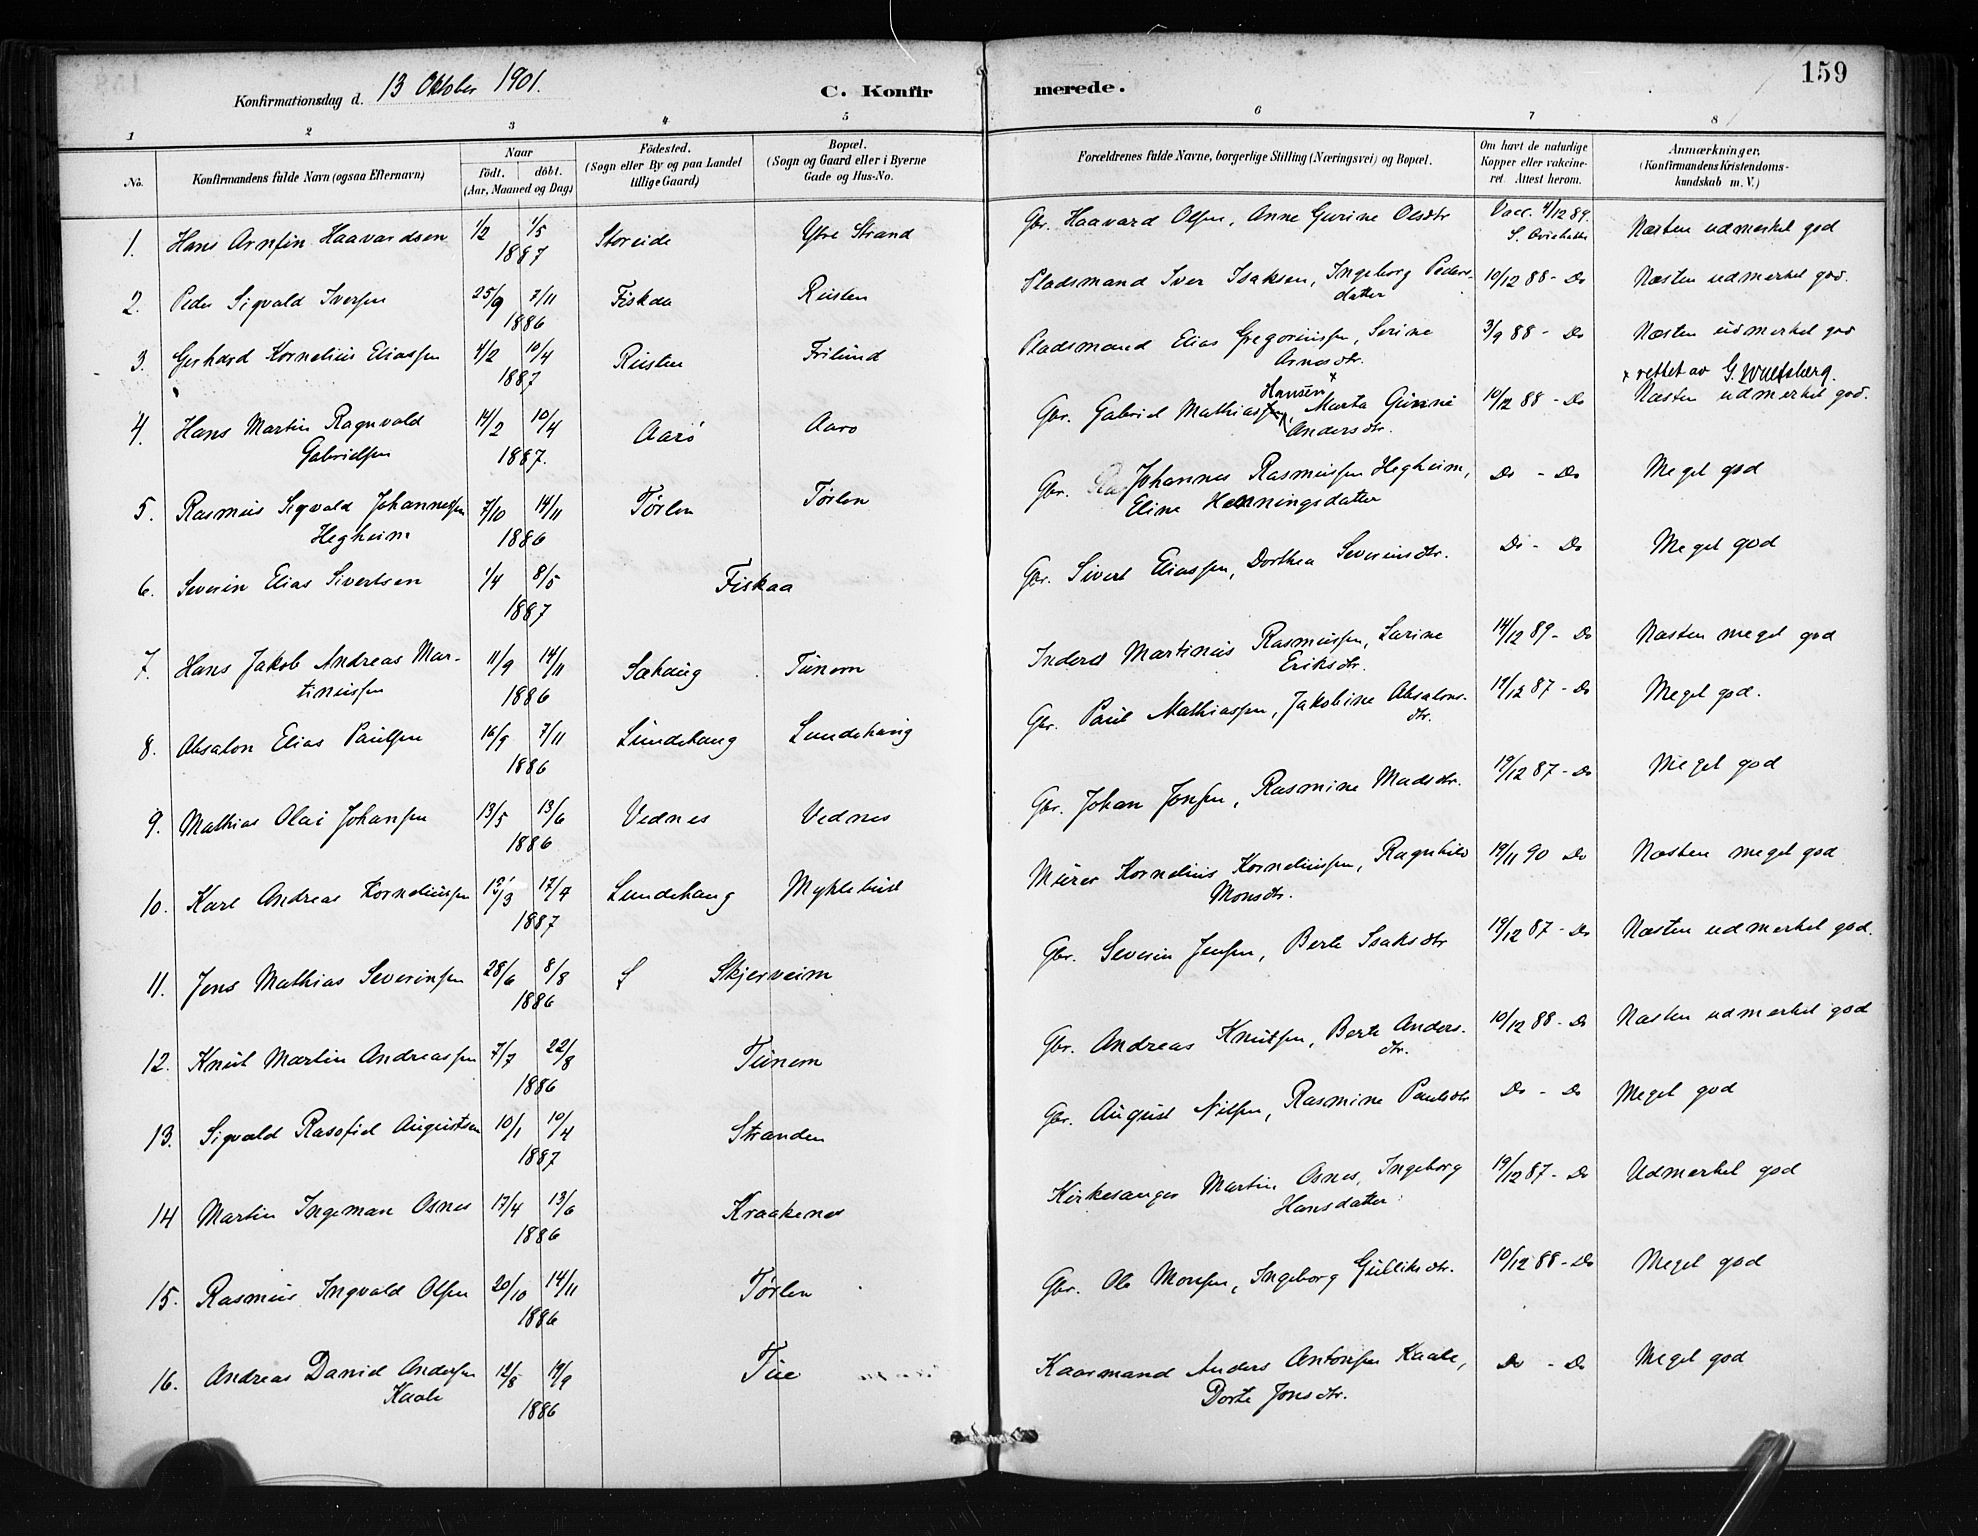 159
Konfirmationsdag d. 13 Oktober 1901.
C. Konfirmerede.
1 2 3 4 5 6 7 8
No. Konfirmandens fulde Navn (ogsaa Efternavn) Naar født. døbt. (Aar, Maaned og Dag) Fødested. (Sogn eller By og paa Landet tillige Gaard) Bopæl. (Sogn og Gaard eller i Byerne Gade og Hus-No. Forældrenes fulde Navne, borgerlige Stilling (Næringsvei) og Bopæl. Om havt de naturlige Kopper eller vakcineret. Attest herom. Anmærkninger, (Konfirmandens Kristendomskundskab m. V.)
1. Hans Arnfin Haavardsen 1/2 1/5 1887 Storeide Ytre Strand Gbr. Haavard Olsen, Anne Gurine Olsdtr Vacc. 4/12 89. Næsten udmerket god
2. Peder Sigvald Iversen 25/9 7/11 1886 Fiskaa Risten Pladsmand Iver Isaksen, Ingeborg Pedersdatter 10/12 88 - Do Næsten udmerket god.
3. Gerhard Kornelius Eliassen 4/2 10/4 1887 Risten Frilund Pladsmand Elias Gregoriussen, Serine Arnesdtr. 3/9 88 - Do Næsten udmerket god
x rettet av G. Wulfsberg.
4. Hans Martin Ragnvald Gabrielsen 14/2 10/4 1887. Aarö Aarö Gbr. Gabriel Mathiassen Hansen x, Marta Gunni Andersdtr. 10/12 88 - Do Næsten udmerket god.
5. Rasmus Sigvald Johannessen Hegheim 7/10 14/11 1886 Tørlen Tørlen Gbr. Johannes Rasmussen Hegheim, Eline Henningsdatter Do - Do Meget god
6. Severin Elias Sivertsen 1/4 8/5 1887 Fiskaa Gbr. Sivert Eliassen, Dorthea Severinsdtr. Do - Do Meget god
7. Hans Jakob Andreas Martinussen 11/9 14/11 1886 Sæhaug Tunem Inderst Martinus Rasmussen, Sarine Eriksdtr. 14/12 89 - Do Næsten meget god
8. Absalon Elias Paulsen 16/9 7/11 1886 Lundehaug Lundehaug Gbr. Paul Mathiassen, Jakobine Absalonsdtr. 19/12 87 - Do Meget god.
9. Mathias Olai Johansen 13/5 13/6 1886 Vednes Vednes Gbr. Johan Jonsen, Rasmine Madsdtr. 19/12 87 - Do Meget god
10. Karl Andreas Korneliussen 12/3 17/4 1887 Lundehaug Myklebust Murer Kornelius Korneliussen, Ragnhild Monsdtr. 19/11 90 Do Næsten meget god
11. Jens Mathias Severinsen 28/6 8/8 1886 S Skjerveim Gbr. Severin Jensen, Berte Isaksdtr 19/12 87 - Do Næsten udmerket god.
12. Knut Martin Andreassen 7/7 22/8 1886 Tunem Gbr. Andreas Knutsen, Berte Andersdtr. 10/12 88 - Do Næsten udmerket god
13. Sigvald Rasofiel Augustsen 10/1 10/4 1887 Stranden Gbr. August Nilsen, Rasmine Paulsdtr Do - Do Meget god
14 Martin Ingeman Osnes 17/4 13/6 1886 Kraakenes Kirkesanger Martin Osnes, Ingeborg Hansdatter 19/12 87 - Do Udmerket god
15. Rasmus Ingvald Olsen 20/10 14/11 1886 Tørlen Gbr. Ole Monsen, Ingeborg Gulliksdtr. 10/12 88 - Do Meget god
16. Andreas David Andersen Kaale 12/8 19/9 1886 Tue Kaarmand Anders Antonsen Kaale, Dorte Jonsdtr. Do - Do Meget god